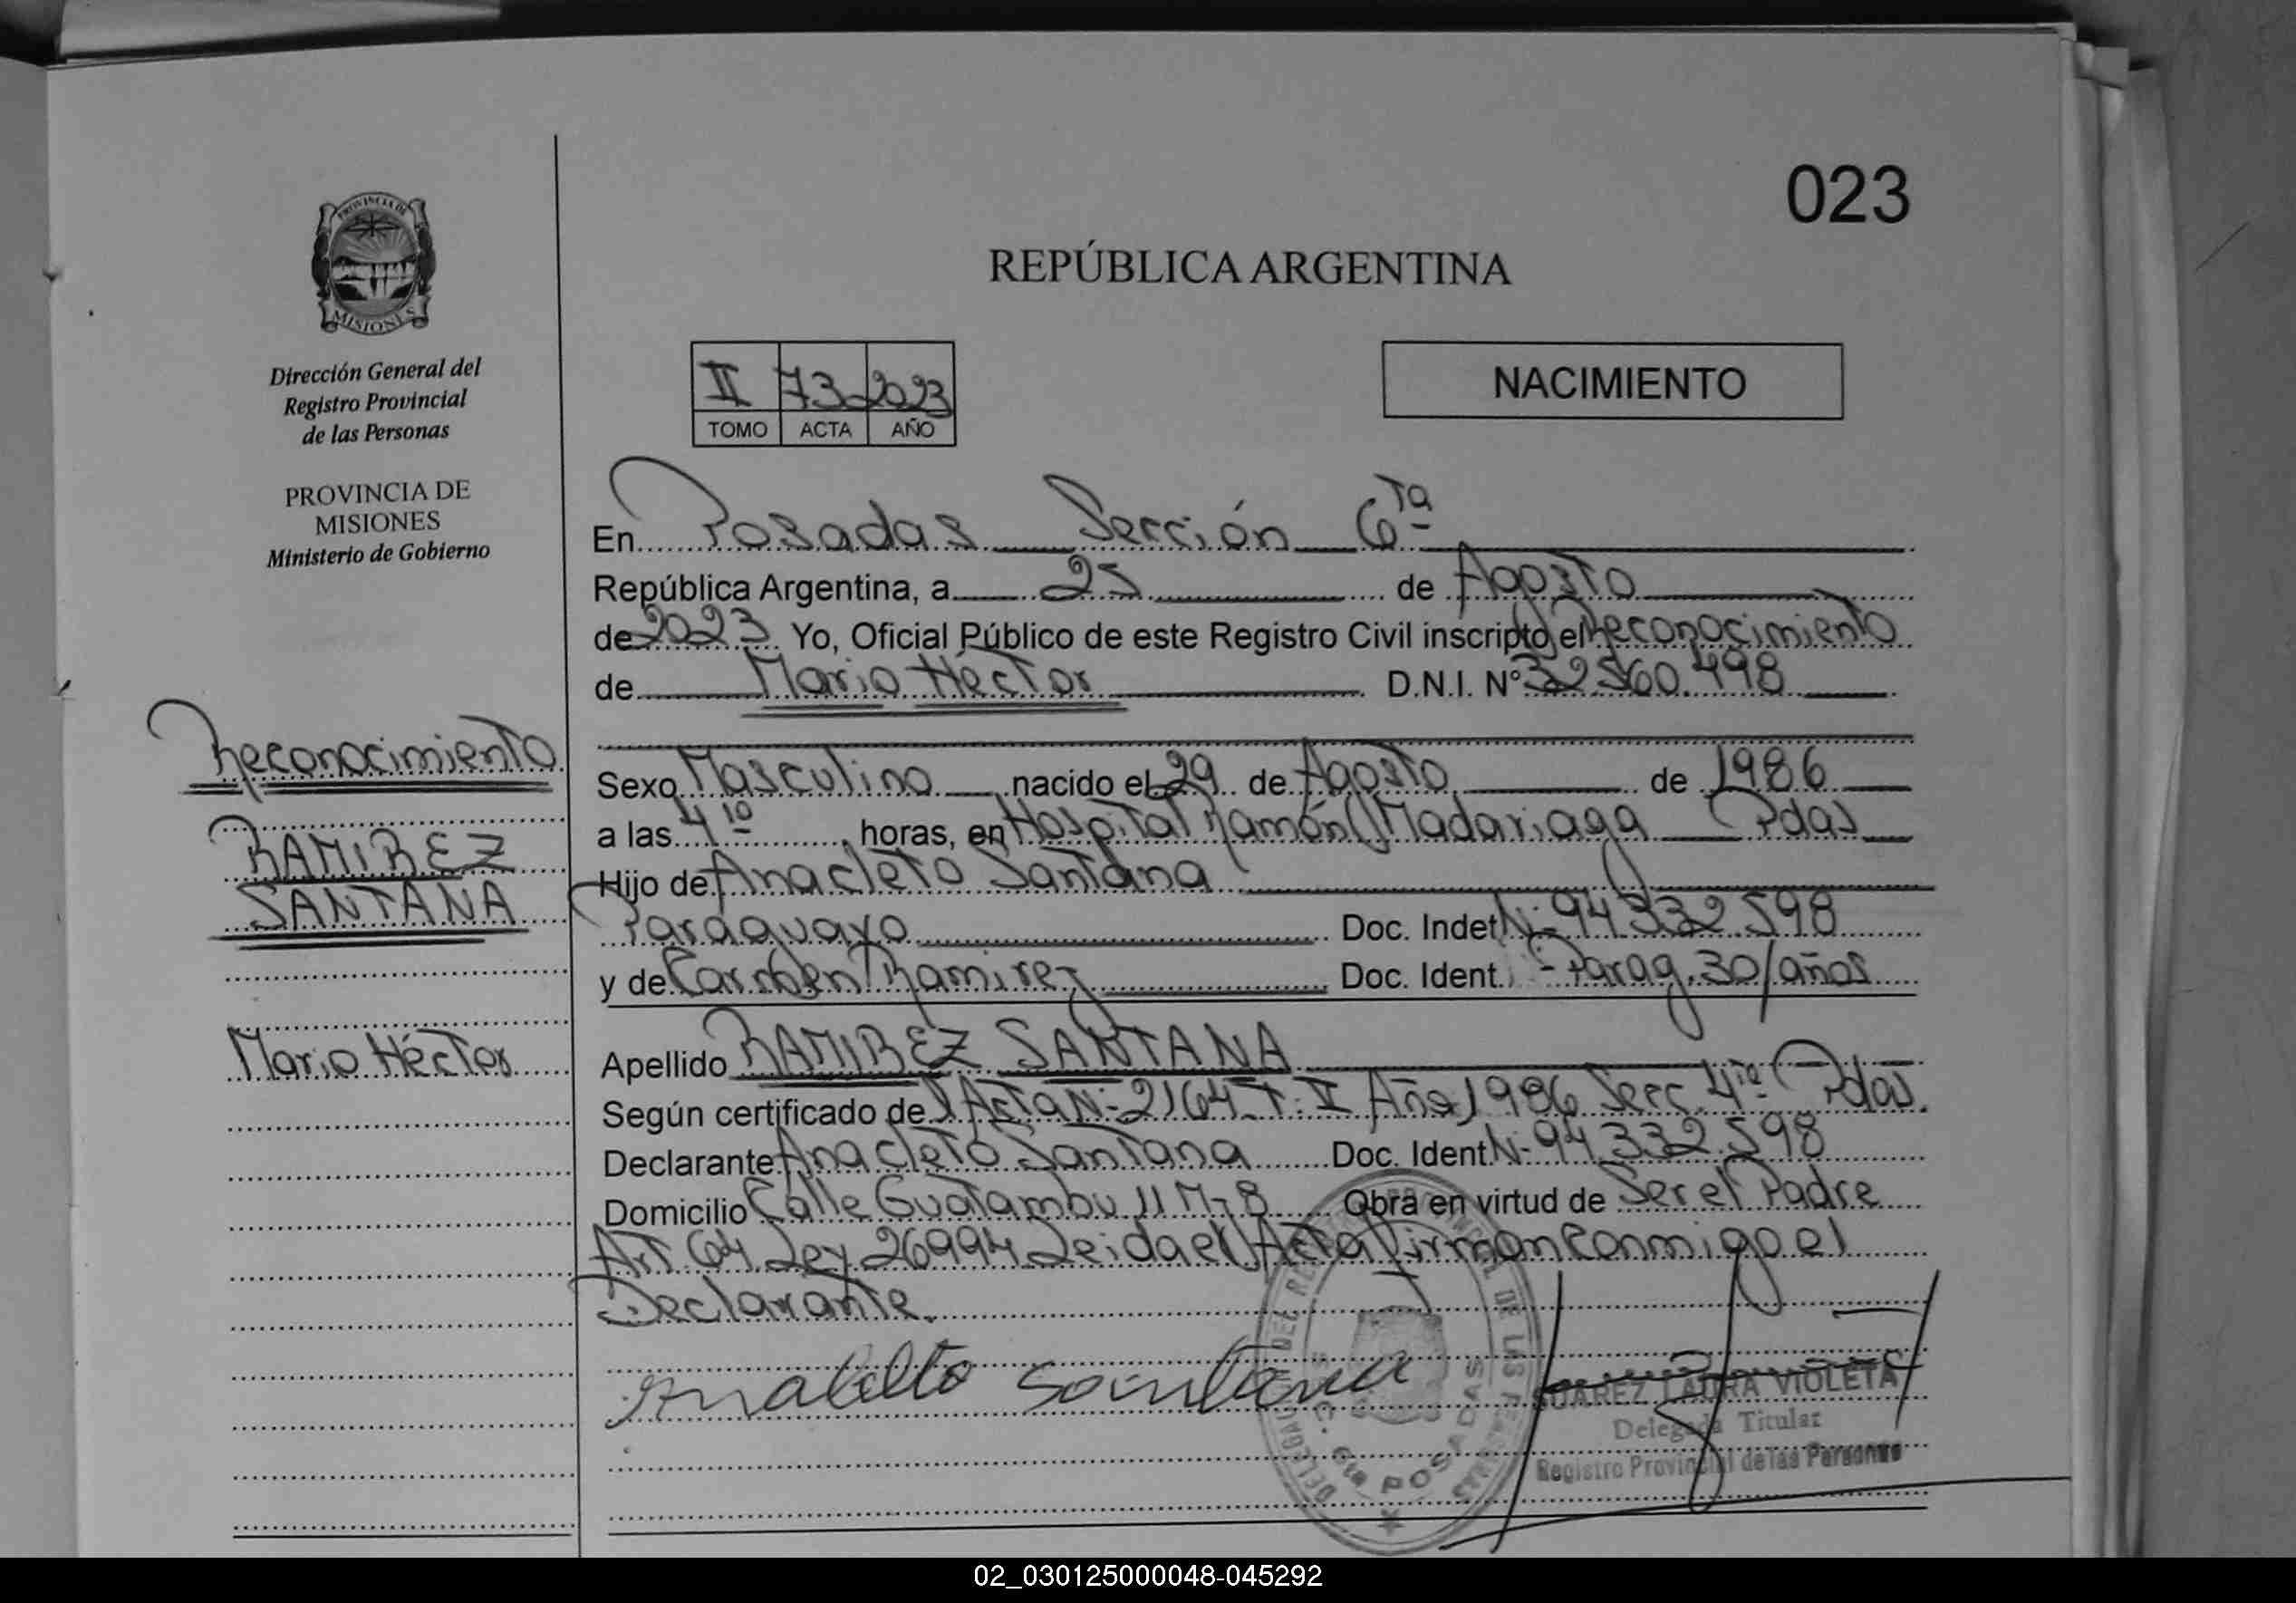 023
PROVINCIA DE
MISIONES
Dirección General del
Registro Provincial
de las Personas
PROVINCIA DE
MISIONES
Ministerio de Gobierno
Reconocimiento
RAMIREZ
SANTANA
Mario Héctor
REPÚBLICA ARGENTINA
II 73 2023
TOMO ACTA AÑO
NACIMIENTO
En Posadas Sección 6ta
República Argentina, a 25 de Agosto
de 2023 Yo, Oficial Público de este Registro Civil inscripto el Reconocimiento
de Mario Héctor D.N.I. N° 32560.498
Sexo Masculino nacido el 29 de Agosto de 1986
a las 4 10 horas, en Hospital Ramón Madariaga Pdas
Hijo de Anacleto Santana
Paraguayo Doc. Indet N- 94 332.598
y de Carmen Ramirez Doc. Ident. - Parag. 30/años
Apellido RAMIREZ SANTANA
Según certificado de Acta N- 2164 T. II Año 1986 Secc 4ta Pdas
Declarante Anacleto Santana Doc. Ident. N- 94 332.598
Domicilio Calle Guatambu 11 M-8 Obra en virtud de Ser el Padre
Art. 64 Ley 26994 Leida el Acta Firman Conmigo el
Declarante.
Anacleto Santana
SUAREZ LAURA VIOLETA
Delegada Titular
Registro Provincial de las Personas
02_030125000048-045292